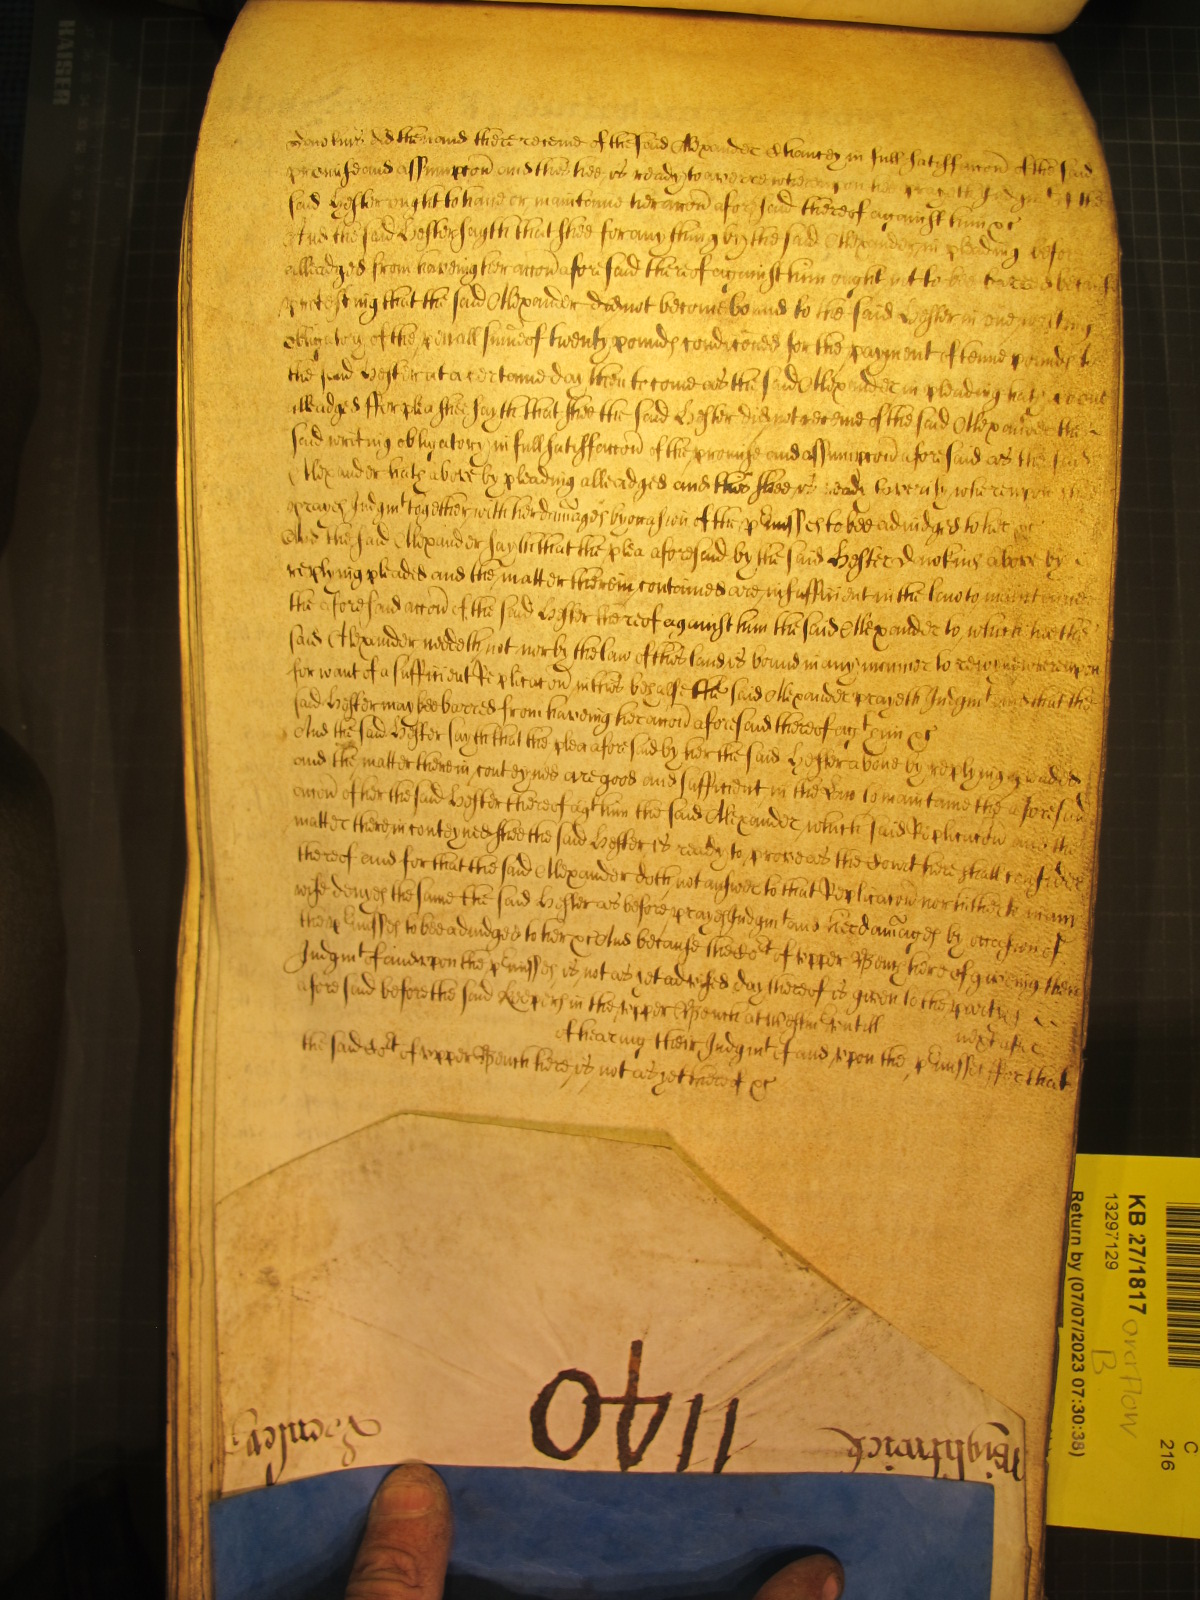 did then and there receive of the said Alexander in full satisfaccon of the said
promise and assumpcon and this hee is ready to averre wherevpon hee prayeth Judgmt if the
said Hester ought to have or mainteine her accon aforesaid thereof against him &c
And the said Hester sayth that shee for any thing by the said Alexander in pleading before
alleadged from haveing her accon aforesaid thereof against him ought not to bee barred because
protesting that the said Alexander did not become bound to the said Hester in one writing
obligatory of the penall sume of twenty pounds condiconed for the payment of tenne pounds to
the said Hester at a certaine day then to come as the said Alexander in pleading hath above
alleadged ffor plea shee sayth that shee the said Hester did not receive of the said Alexander the
said writing obligatory in full satisfaccon of the promise and assumpcon aforesaid as the said
Alexander hath above by pleading alleadged and this shee is ready to verify wherevpon shee
prayes Judgmt together with her damages by occasion of the pmisses to bee adiudged to her &c
And the said Alexander sayth that the plea aforesaid by the said Hester above by
replying pleaded and the matter therein contained are insufficient in the law to mainteine
the aforesaid accon of the said Hester thereof against him the said Alexander to which hee the
said Alexander needeth not nor by the law of this land is bound in any manner to reioyne wherevpon
for want of a sufficient Replicacon in this behalfe the said Alexander prayeth Judgmt and that the
said Hester may bee barred from haveing her accon aforesaid thereof agt him &c
And the said Hester sayth that the plea aforesaid by her the said Hester above by replying pleaded
and the matter therein conteyned are good and sufficient in the Law to maintaine the aforesaid
accon of her the said Hester thereof agt him the said Alexander which said Replicacon and the
matter therein conteyned shee the said Hester is ready to prove as the Court here shall consider
thereof and for that the said Alexander doth not answer to that Replicacon nor hitherto in any
wise denyes the same the said Hester as before prayes Judgmt and her damages by occasion of
the pmisses to bee adiudged to her &c And because the Cort of vpper Bench here of giveing their
Judgmt of and vpon the pmisses is not as yet advised day thereof is given to the partyes
aforesaid before the said Keepers in the vpper Bench at Westm vntill next after
of hearing their Judgmt of and vpon the pmisses ffor that
the said Cort of vpper Bench here is not as yet thereof &c
1140
Wightwick
Henley
KAISER
KB 27/1817 overflow
B
13297129
Return by (07/07/2023 07:30:38)
C
216